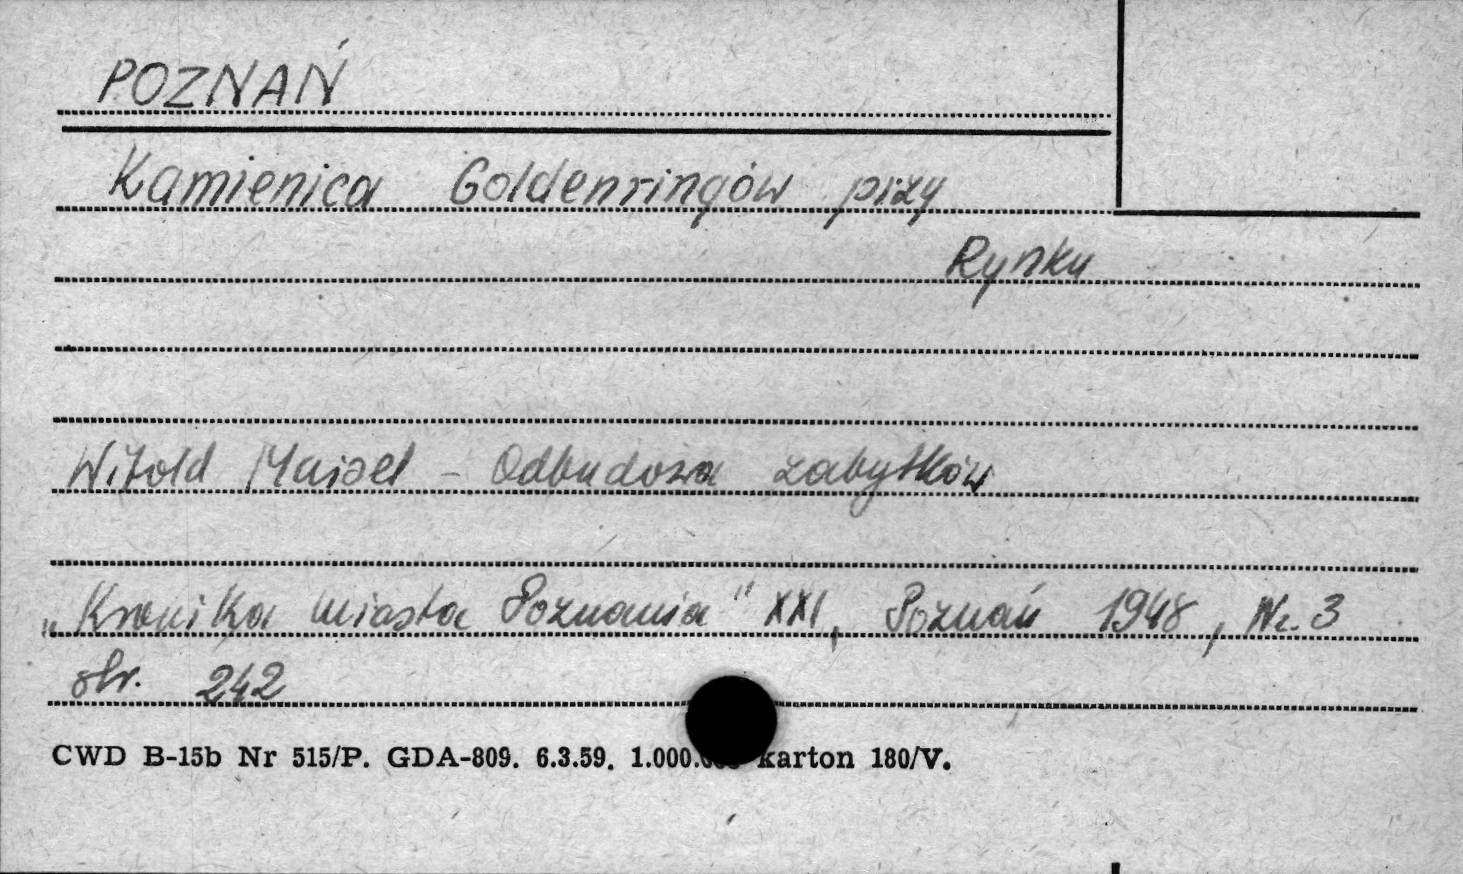 POZNAŃ
Kamienica Goldenringów przy
Rynku
Witold Maisel - Odbudowa zabytków
„Kronika miasta Poznania" XXI, Poznań 1948, Nr. 3
str. 242
CWD B-15b Nr 515/P. GDA-809. 6.3.59. 1.000. karton 180/V.